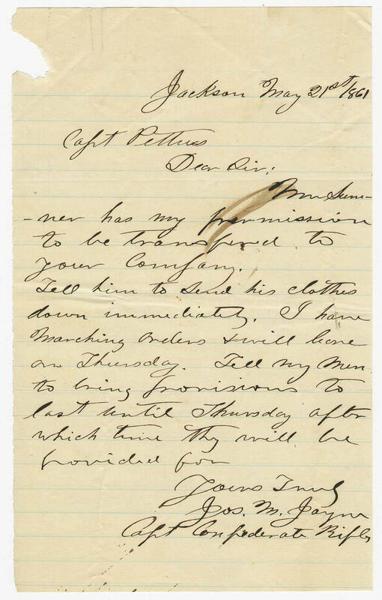 Jackson May 21st 1861
Capt Pettus
Dear Sir;
Mr Sum-
-ner has my permission
to be transfered to
your Company.
Tell him to send his clothes
down immediately. I have
Marching orders & will leave
on Thursday. Tell my Men
to bring provisions to
last until Thursday after
which time they will be
provided for
Yours Truly
Jos. M. Jayne
Capt Confederate Rifles